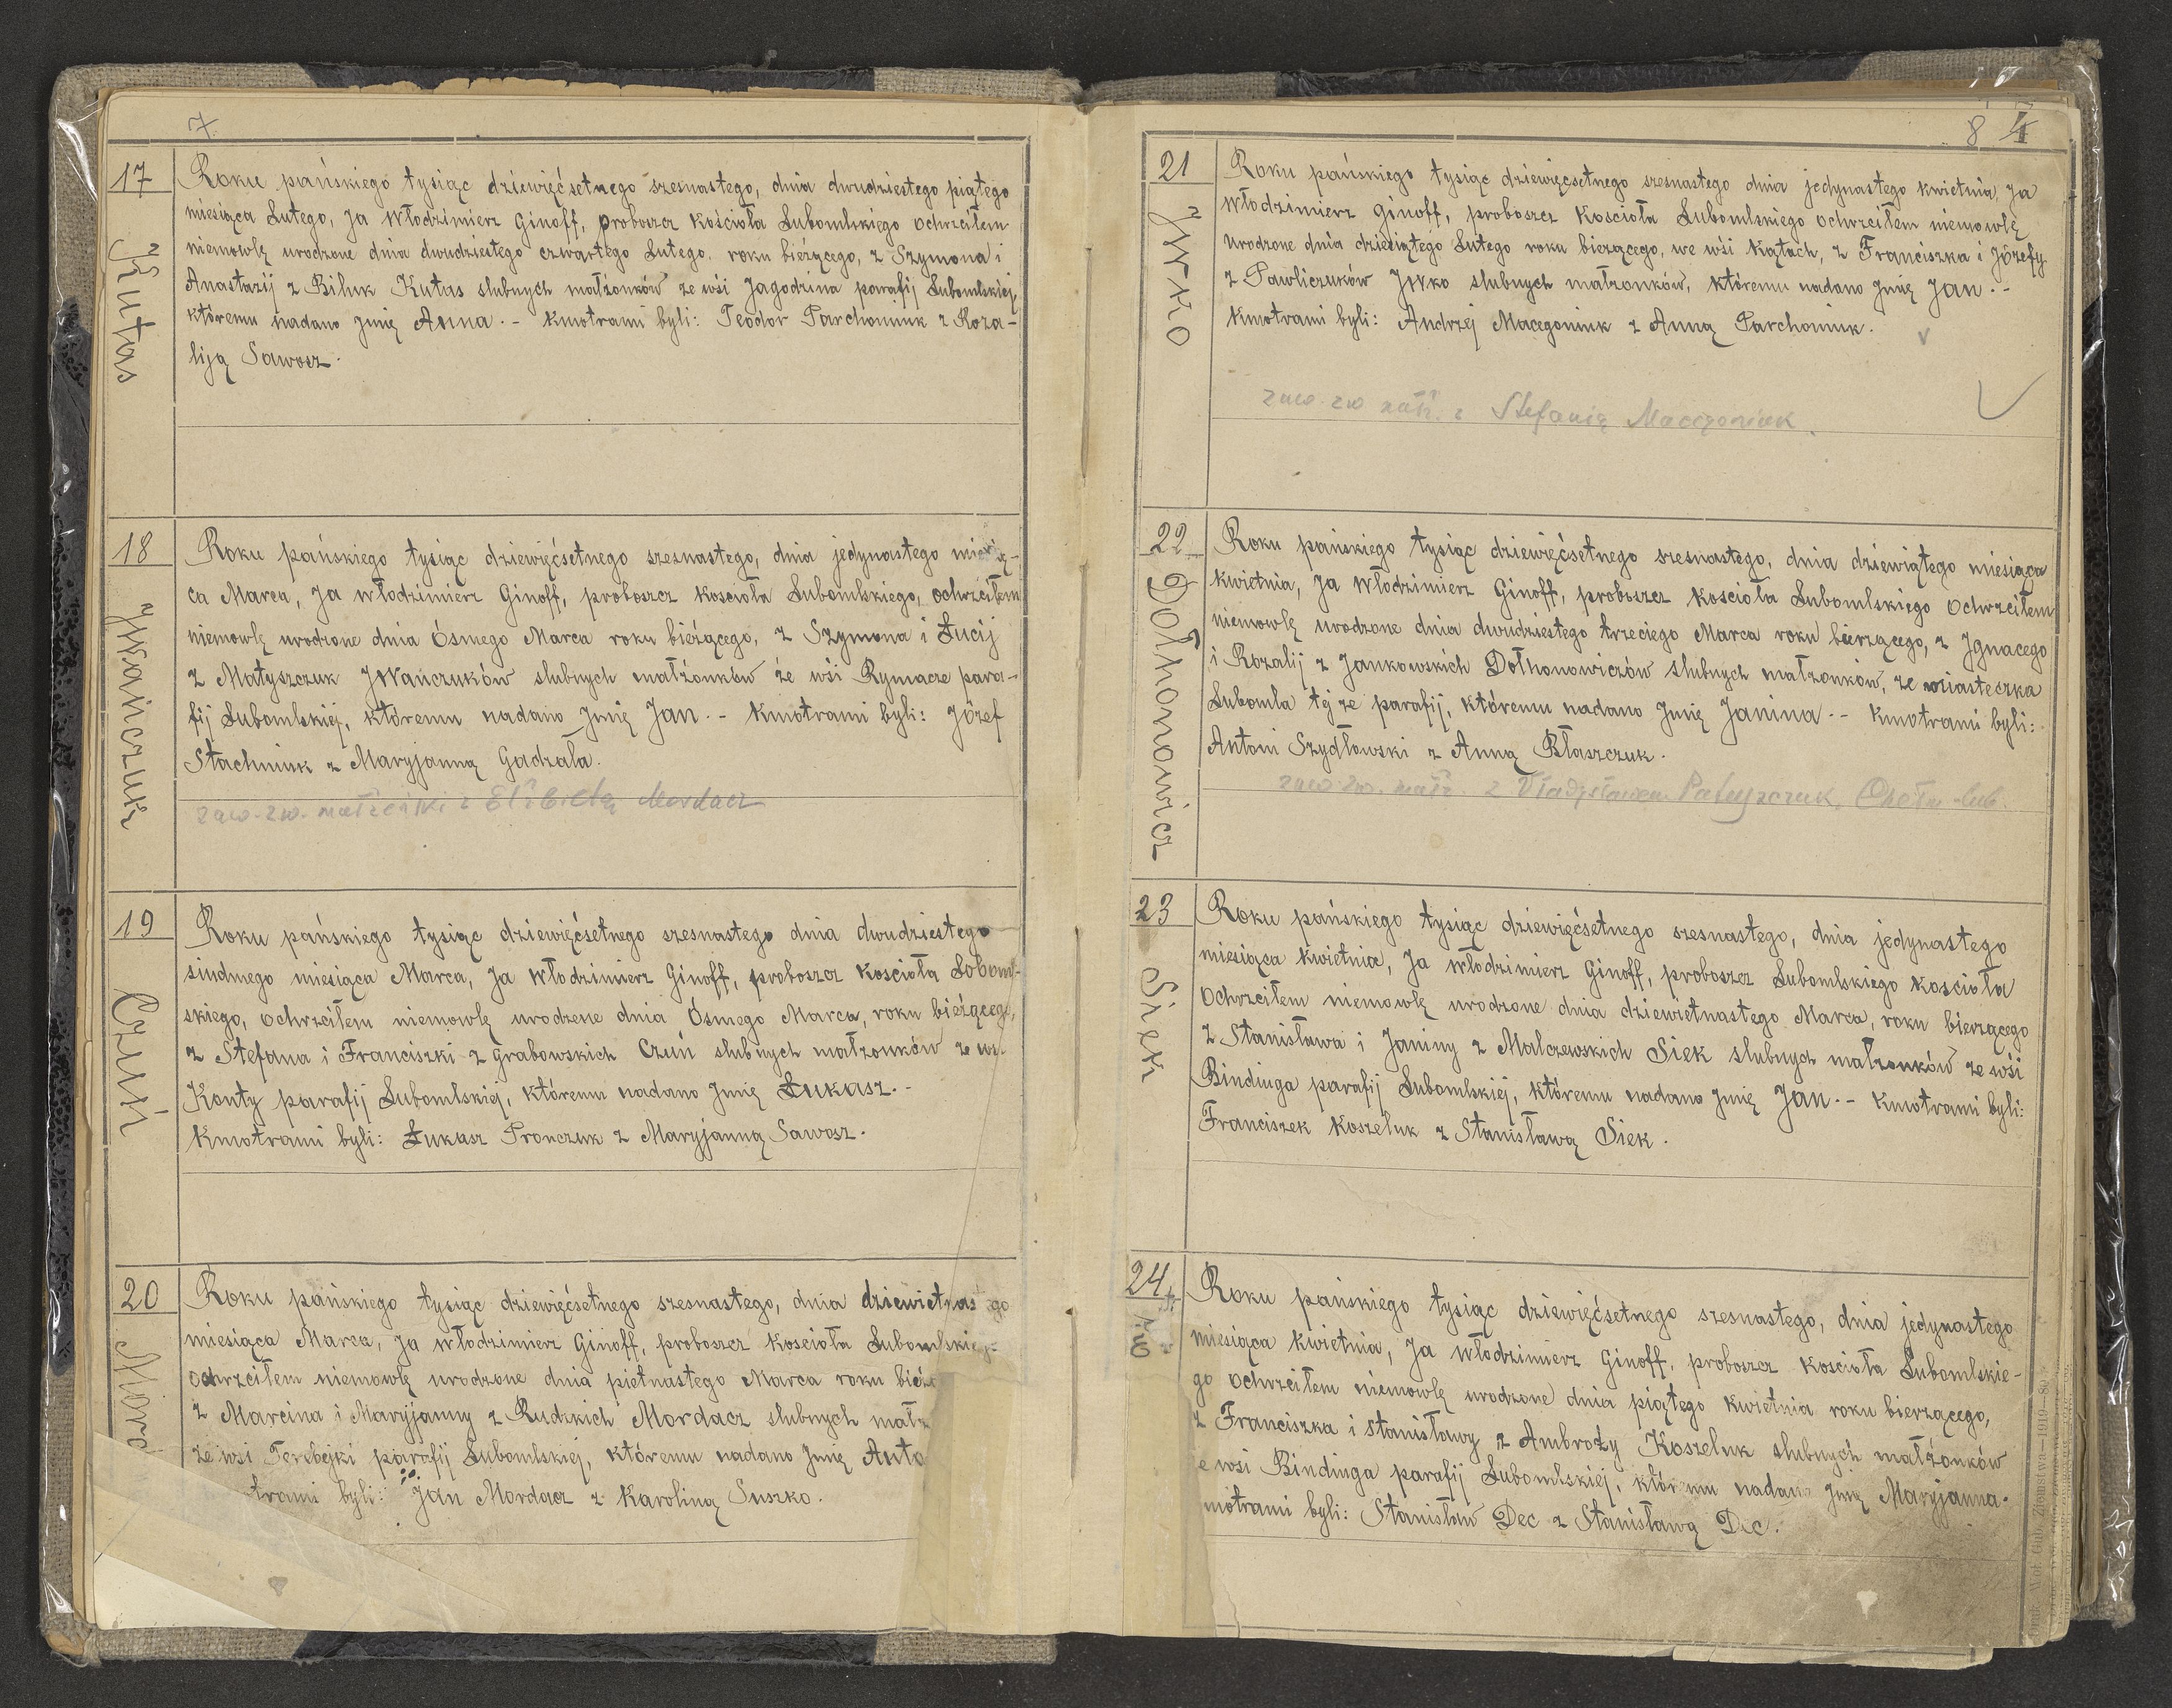 7.
17
Kutas
Roku pańskiego tysiąc dziewięćsetnego szesnastego, dnia dwudziestego piątego
miesiąca Lutego, Ja Włodzimierz Ginoff, proboszcz Kościoła Lubomlskiego ochrzciłem
niemowlę urodzone dnia dwudziestego czwartego Lutego, roku bieżącego, z Szymona i
Anastazij z Biluk Kutas slubnych małżonków ze wśi Jagodzina parafij Lubomlskiej,
któremu nadano Jmię Anna.- Kmotrami byli: Teodor Parchomiuk z Roza-
liją Sawosz.
18
Jwańczuk
Roku pańskiego tysiąc dziewięćsetnego szesnastego, dnia jedynastego miesią-
ca Marca, Ja Włodzimierz Ginoff, proboszcz Kościoła Lubomlskiego, ochrzciłem
niemowlę urodzone dnia Ósmego Marca roku bieżącego, z Szymona i Łucij
z Matyszczuk Jwańczuków slubnych małżonków że wśi Rymacze para-
fij Lubomlskiej, któremu nadano Jmię Jan.- Kmotrami byli: Józef
Stachniuk z Maryjanną Gadzała.
zaw. zw. małżeński z Elżbietą Mordacz
19
Czuń
Roku pańskiego tysiąc dziewięćsetnego szesnastego dnia dwudziestego
siudmego miesiąca Marca, Ja Włodzimierz Ginoff, proboszcz Koscioła Luboml-
skiego, ochrzciłem niemowlę urodzone dnia Ósmego Marca, roku bieżącego,
z Stefana i Franciszki z Grabowskich Czuń slubnych małzonków ze wsi
Konty parafij Lubomlskiej, któremu nadano Jmię Łukasz.-
Kmotrami byli: Łukasz Pronczuk z Maryjanną Sawosz.
20
Mord
Roku pańskiego tysiąc dziewięćsetnego szesnastego, dnia dziewietnas go
miesiąca Marca, Ja Włodzimierz Ginoff, proboszcz Koscioła Lubomlskiej-
ochrzciłem niemowlę urodzone dnia pietnastego Marca roku bież
z Marcina i Maryjanny z Rudzkich Mordacz slubnych małż
ze wsi Terebejki parafij Lubomlskiej, któremu nadano Jmię Anto
otrami byli: Jan Mordacz z Karoliną Suszko.
8 4
21
Jwko
Roku pańskiego tysiąc dziewięćsetnego szesnastego dnia jedynastego Kwietnia, Ja
Włodzimierz Ginoff, proboszcz Kosciola Lubomlskiego ochrzciłem niemowlę
urodzone dnia dziesiątego Lutego roku bierzącego, we wśi Kątach, z Franciszka i Józefy
z Pawliczuków Jwko slubnych małzonków, któremu nadano Jmię Jan.-
Kmotrami byli: Andrzej Macegoniuk z Anną Parchomiuk.
zaw. zw. małż. z Stefanią Macegoniuk.
22
Dołhonowicz
Roku pańskiego tysiąc dziewięćsetnego szesnastego, dnia dziewiątego miesiąca
Kwietnia, Ja Włodzimierz Ginoff, proboszcz Kosciola Lubomlskiego ochrzciłem
niemowlę urodzone dnia dwudziestego trzeciego Marca roku bierzącego, z Jgnacego
i Rozalij z Jankowskich Dołhonowiczów slubnych małzonków, ze miasteczka
Lubomla tej że parafij, któremu nadano Jmię Janina.- Kmotrami byli:
Antoni Szydłowski z Anną Błaszczuk.
zaw. zw. małż. z Władysławem Patuszczuk, Chełm-lub.
23
Siek
Roku pańskiego tysiąc dziewięćsetnego szesnastego, dnia jedynastego
miesiąca Kwietnia, Ja Włodzimierz Ginoff, proboszcz Lubomlskiego Kosciola
Ochrzciłem niemowlę urodzone dnia dziewietnastego Marca, roku bierzącego
z Stanisława i Janiny z Malczewskich Siek slubnych małzonków ze wśi
Binduga parafij Lubomlskiej, któremu nadano Jmię Jan.- Kmotrami byli:
Franciszek Koszeluk z Stanisławą Siek.
24
Roku pańskiego tysiąc dziewięćsetnego szesnastego, dnia jedynastego
miesiąca Kwietnia, Ja Włodzimierz Ginoff, proboszcz Kosciola Lubomlskie-
go ochrzciłem niemowlę urodzone dnia piątego Kwietnia roku bierzącego,
z Franciszka i Stanisławy z Ambroży Koszeluk slubnych małżonków
e wsi Binduga parafij Lubomlskiej, któremu nadano Jmię Maryjanna.
motrami byli: Stanisław Dec z Stanisławą Dec.